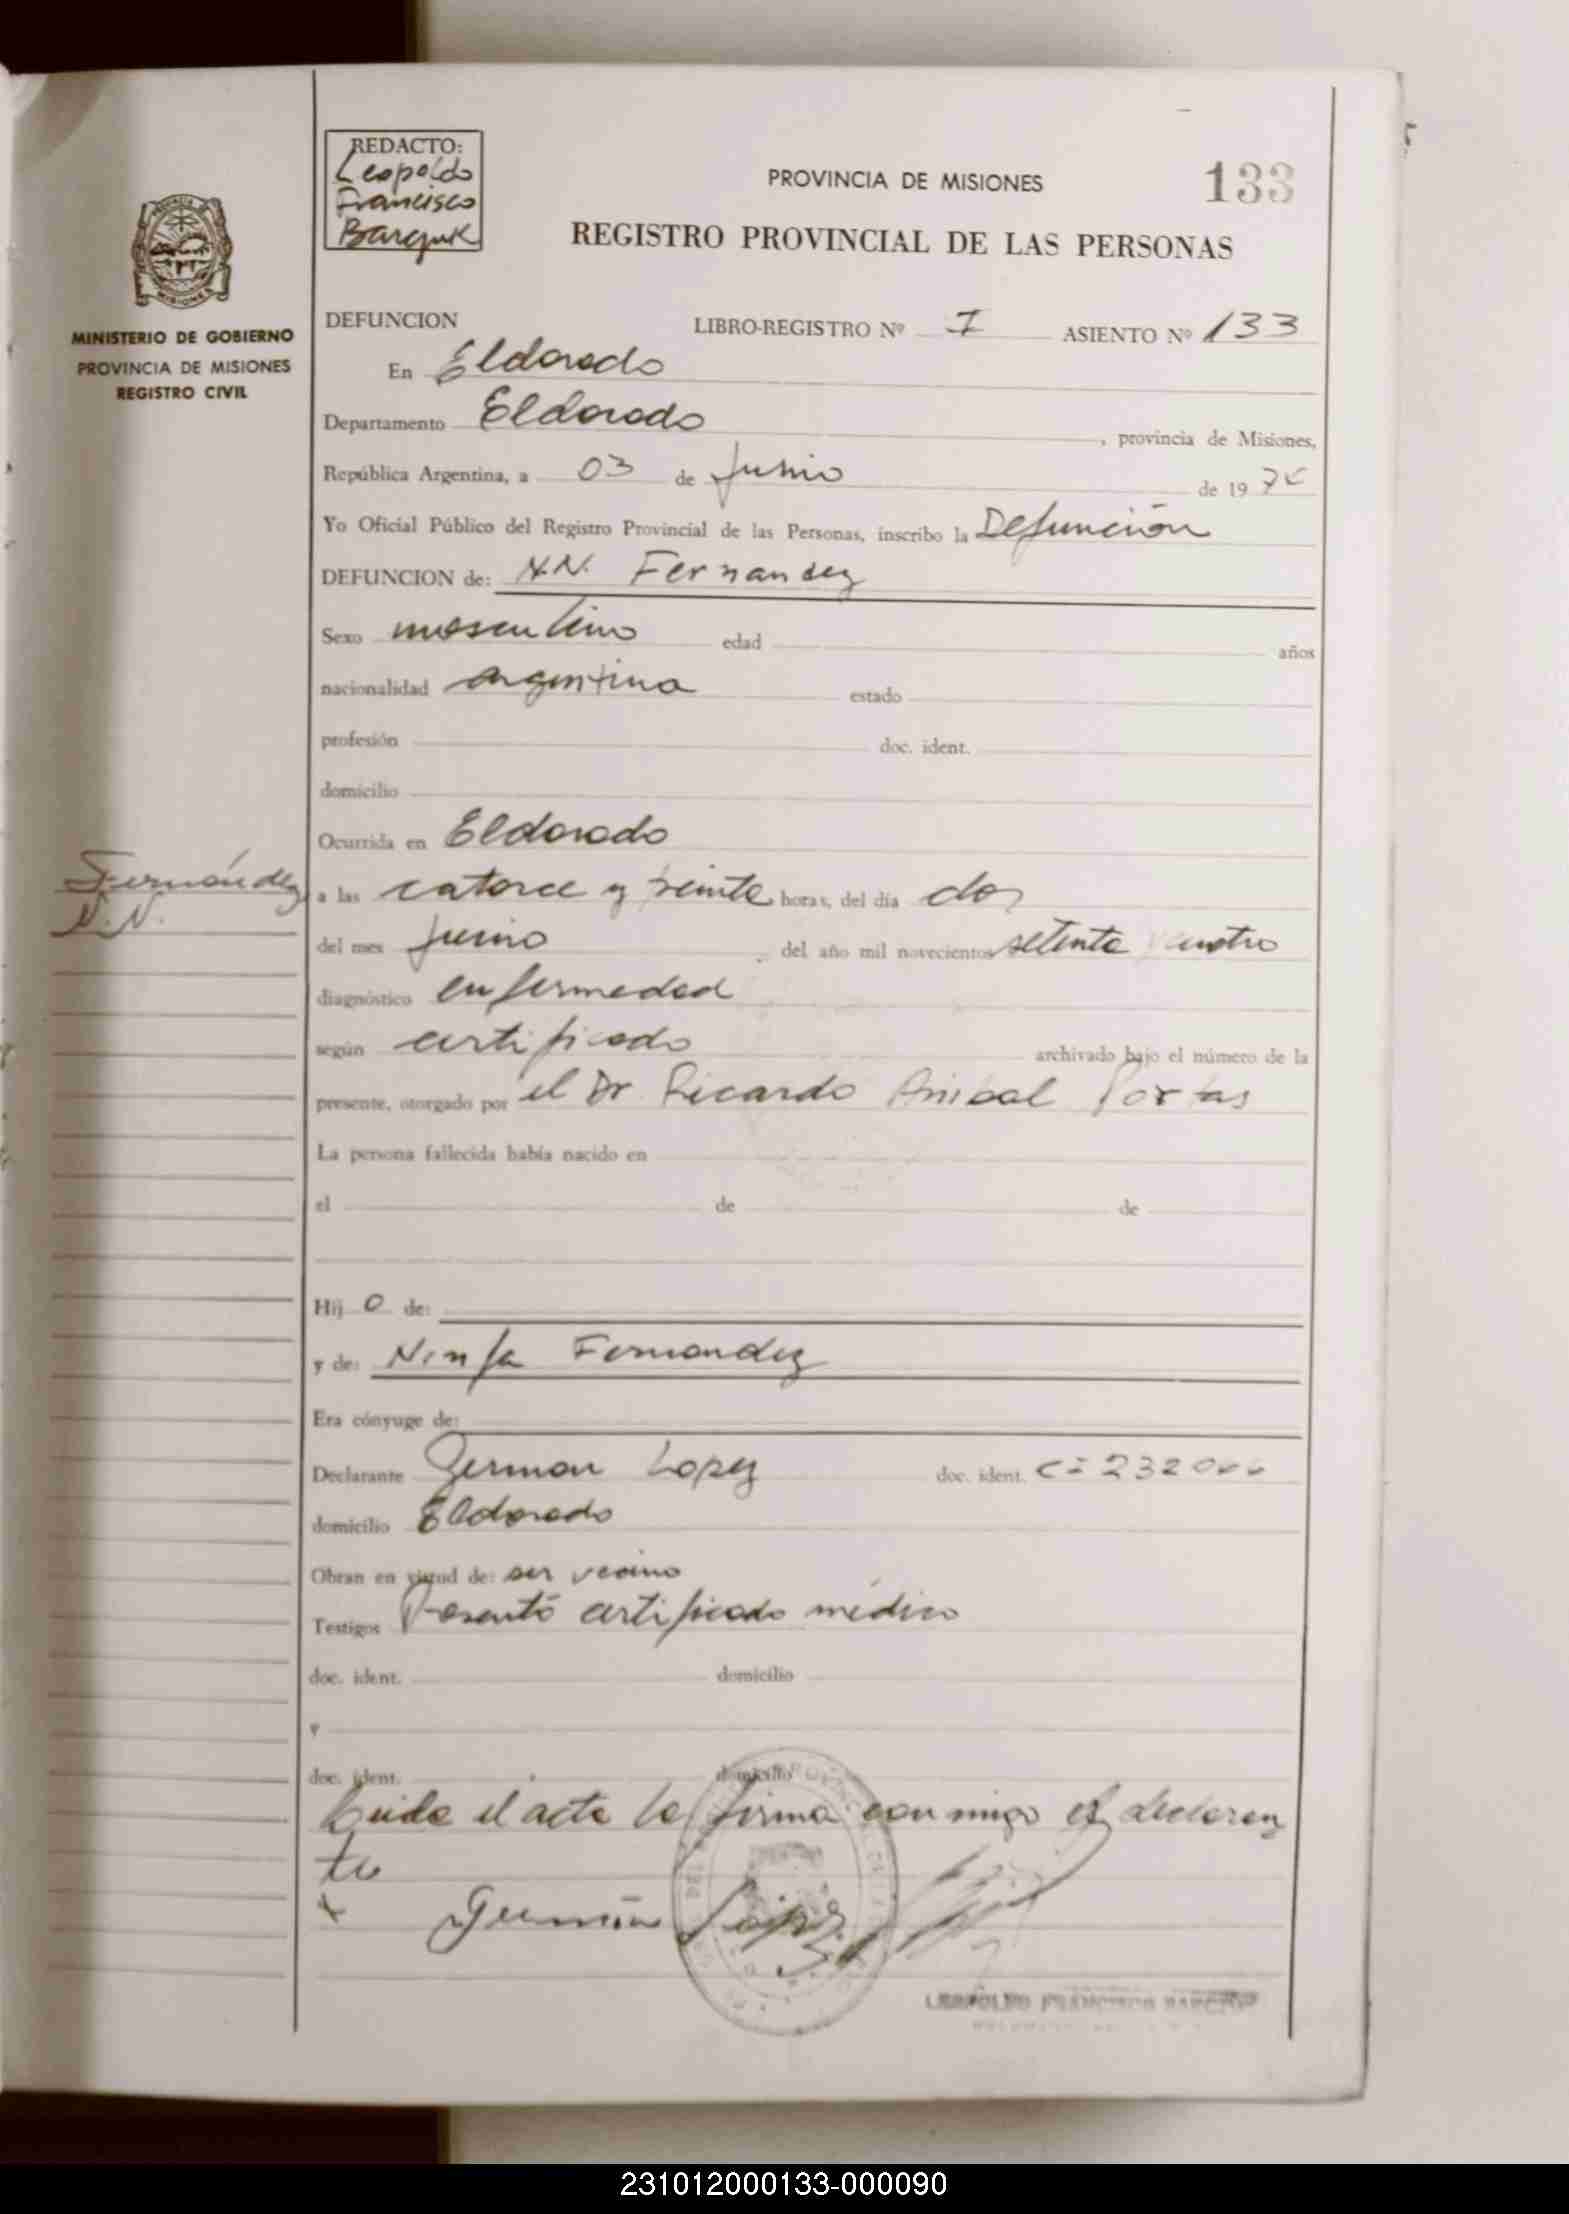 REDACTO:
Leopoldo
Francisco
PROVINCIA DE MISIONES
133
REGISTRO PROVINCIAL DE LAS PERSONAS
MINISTERIO DE GOBIERNO
PROVINCIA DE MISIONES
REGISTRO CIVIL
DEFUNCION LIBRO-REGISTRO Nº I ASIENTO Nº 133
En Eldorado
Departamento Eldorado , provincia de Misiones,
República Argentina, a 03 de Junio de 19
Yo Oficial Público del Registro Provincial de las Personas, inscribo la Defunción
DEFUNCION de: N.N. Fernandez
Sexo masculino edad años
nacionalidad argentina estado
profesión doc. ident.
domicilio
Ocurrida en Eldorado
Fernández
N.N.
a las catorce y veinte horas, del día dos
del mes junio del año mil novecientos setenta y cuatro
diagnóstico enfermedad
según certificado archivado bajo el número de la
presente, otorgado por el Dr. Ricardo Anibal Portas
La persona fallecida había nacido en
el de de
Hij o de:
y de: Ninfa Fernandez
Era cónyuge de:
Declarante German Lopez doc. ident.
domicilio Eldorado
Obran en virtud de: ser vecino
Testigos Presentó certificado médico
doc. ident. domicilio
y
doc. ident. domicilio
Leida el acta la firma con migo el declaran
te
x Germán López
LEOPOLDO FRANCISCO
231012000133-000090